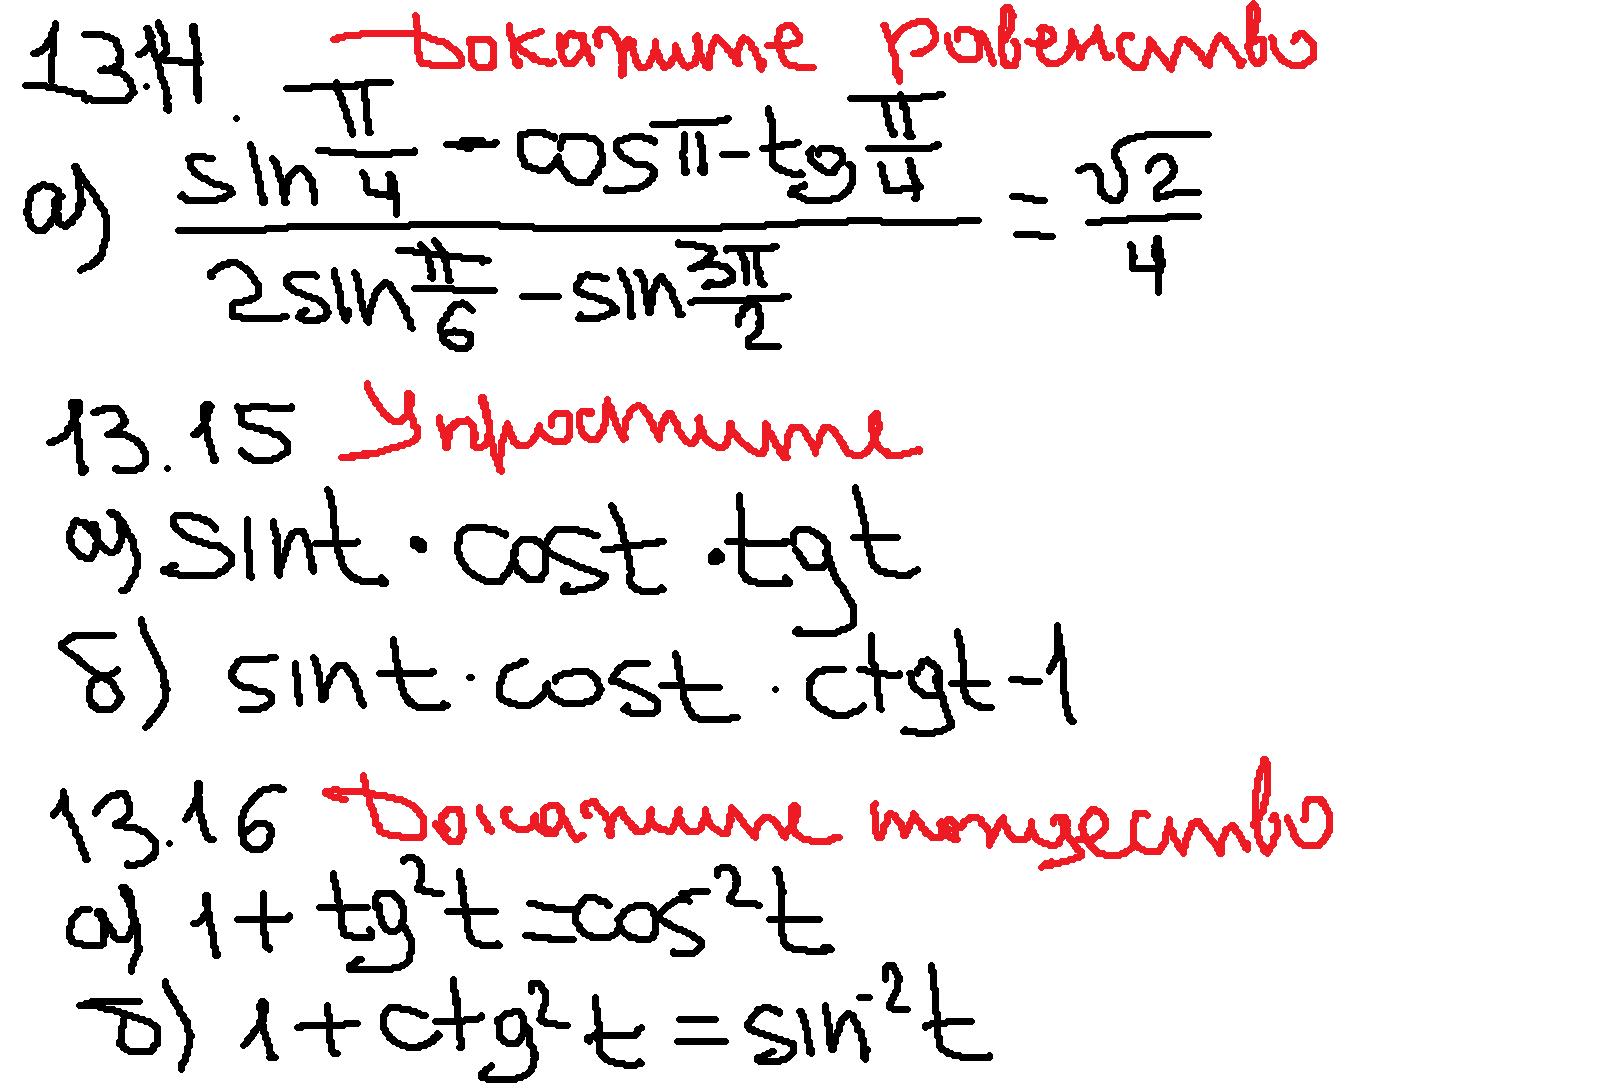 13.14. Докажите равенство
а) (sin π/4 - cos π - tg π/4) / (2 sin π/6 - sin 3π/2) = √2/4
13.15 Упростите
а) sin t · cos t · tg t
б) sin t · cos t · ctg t - 1
13.16 Докажите тождество
а) 1 + tg² t = cos² t
б) 1 + ctg² t = sin⁻² t